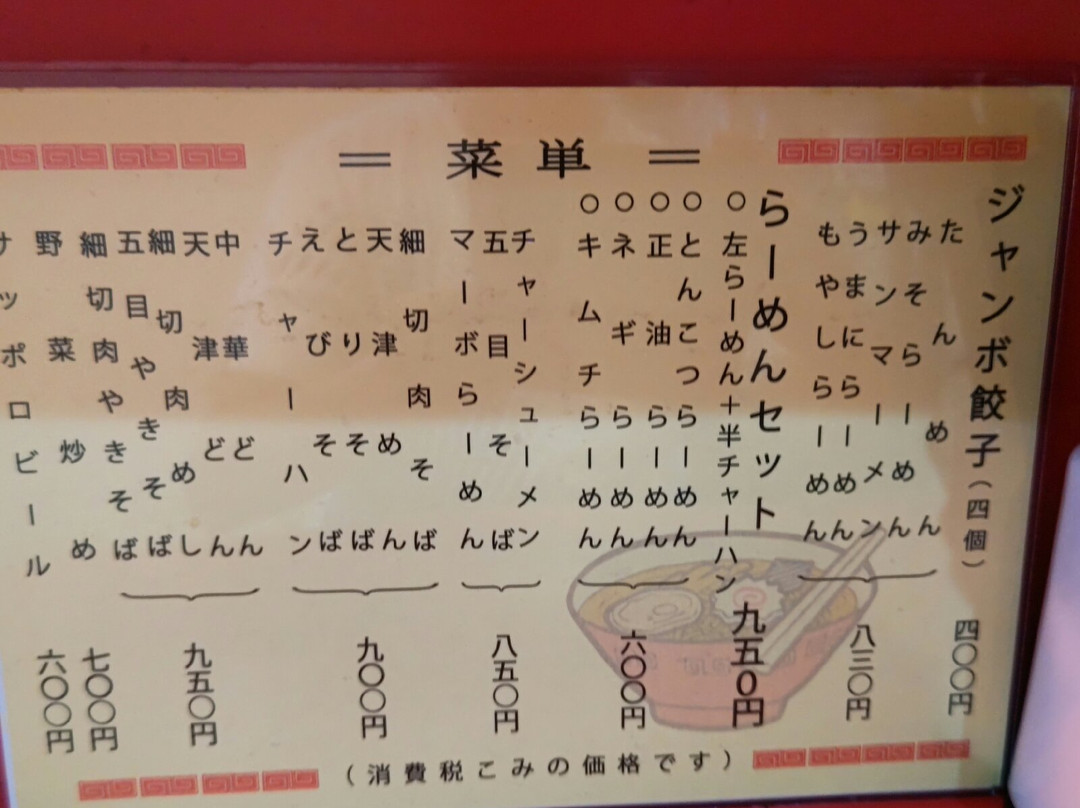 ＝ 菜単 ＝
ジャンボ餃子(四個) 四〇〇円
たんめん
みそらーめん
サンマーメン
うまにらーめん
もやしらーめん
八三〇円
らーめんセット 九五0円
○左らーめん+半チャーハン
○とんこつらーめん
○正油らーめん
○ネギらーめん
○キムチらーめん
六〇〇円
チャーシューメン
五目そば
マーボらーめん
八五〇円
細切肉そば
天津めん
とりそば
えびそば
チャーハン
九〇〇円
中華どん
天津どん
細切肉めし
五目やきそば
細切肉やきそば
九五〇円
野菜炒め 七〇〇円
サッポロビール 六〇〇円
(消費税こみの価格です)